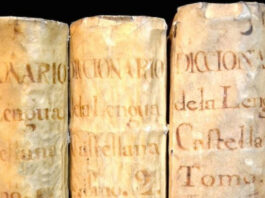 ONARIO
Lengua
stellana
DICCIONARIO
da Lengua
Castellana
Tomo. 2.
DICCION
de la Leng
Castella
Tomo.